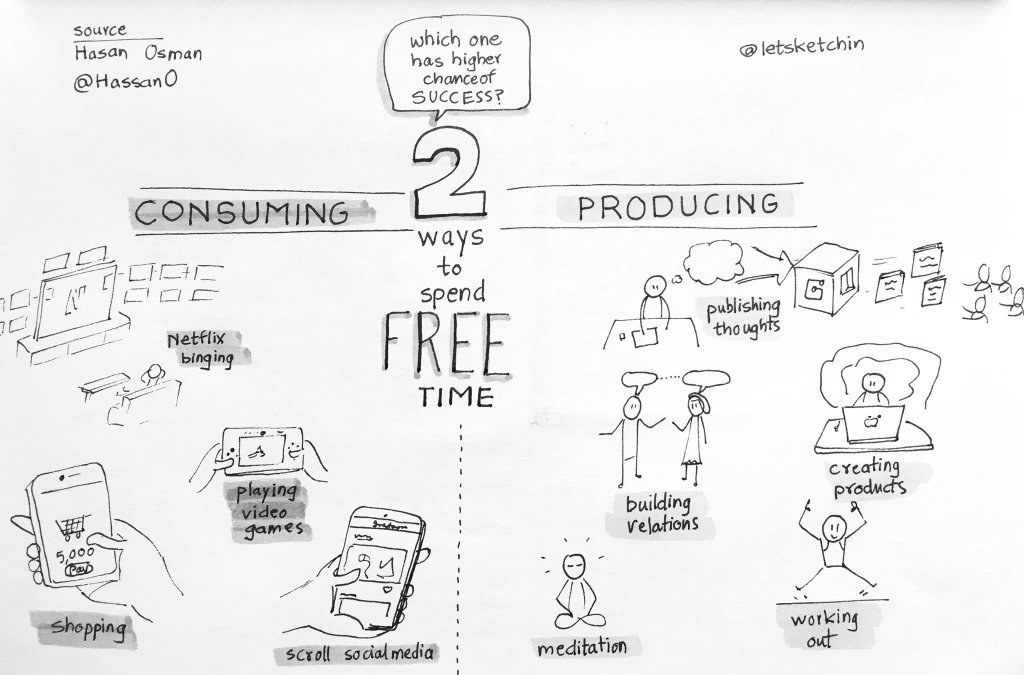 source
Hasan Osman
@HassanO
which one
has higher
chance of
SUCCESS?
@letsketchin
2
ways
to
spend
FREE
TIME
CONSUMING
N
Netflix
binging
playing
video
games
5,000
Pay
Shopping
scroll social media
PRODUCING
publishing
thoughts
building
relations
creating
products
meditation
working
out